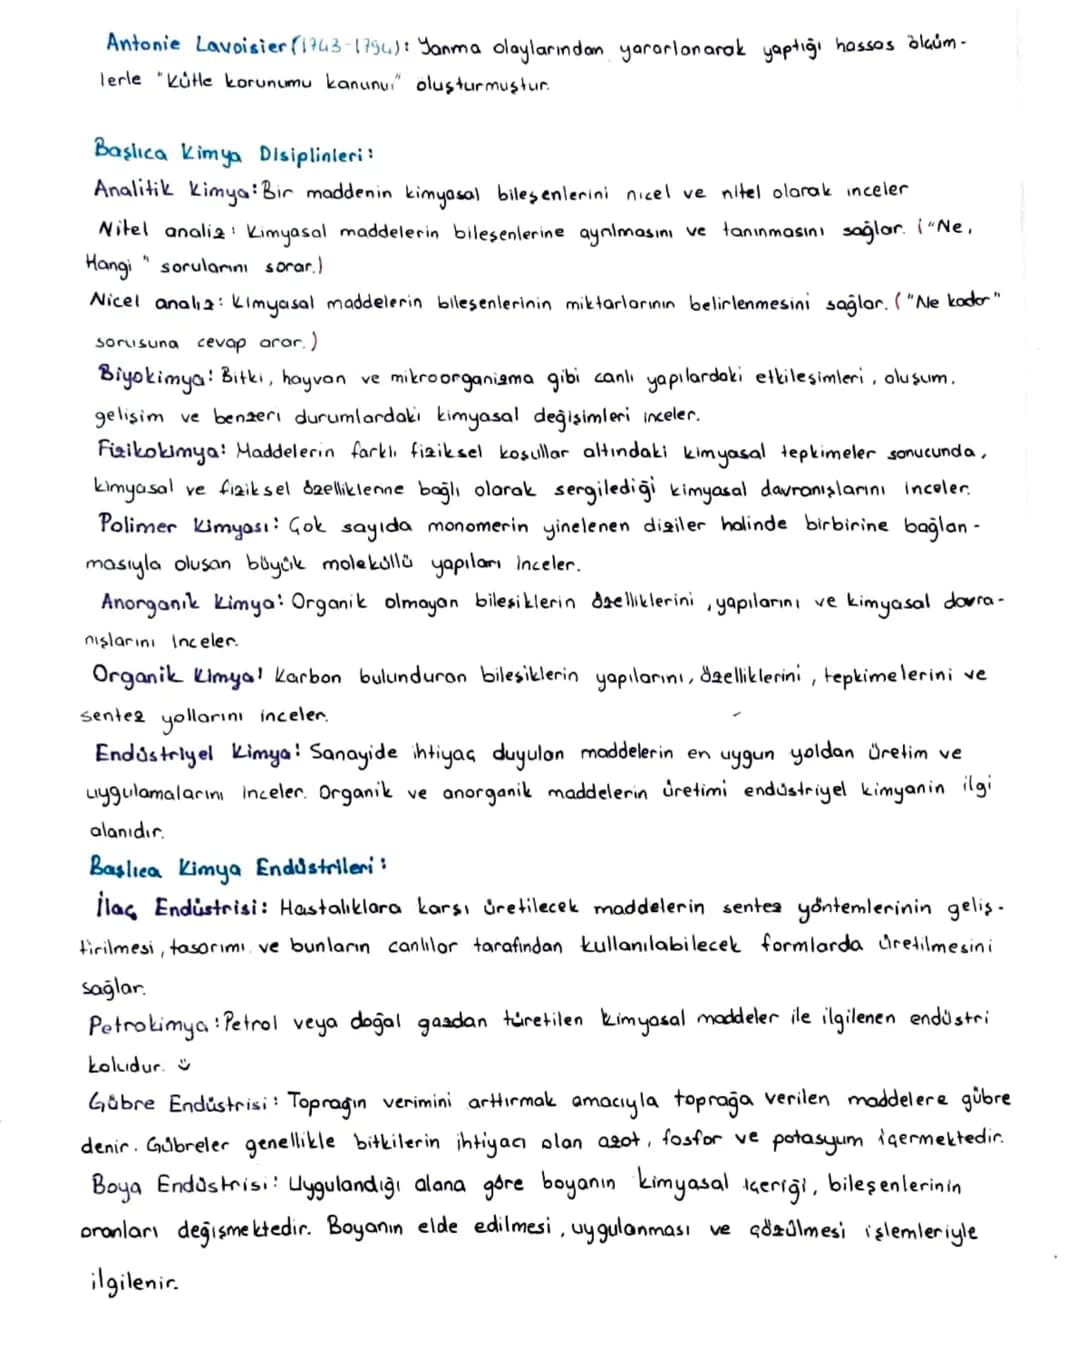 Antonie Lavoisier (1743-1794): Yanma olaylarından yararlanarak yaptığı hassas ölçüm-
lerle "Kütle korunumu kanunu" oluşturmuştur.
Başlıca Kimya Disiplinleri:
Analitik Kimya: Bir maddenin kimyasal bileşenlerini nicel ve nitel olarak inceler
Nitel analiz: Kimyasal maddelerin bileşenlerine ayrılmasını ve tanınmasını sağlar. ("Ne,
Hangi" sorularını sorar.)
Nicel analiz: Kimyasal maddelerin bileşenlerinin miktarlarının belirlenmesini sağlar. ("Ne kadar"
sorusuna cevap arar.)
Biyokimya: Bitki, hayvan ve mikroorganizma gibi canlı yapılardaki etkileşimleri, oluşum,
gelişim ve benzeri durumlardaki kimyasal değişimleri inceler.
Fizikokimya: Maddelerin farklı fiziksel koşullar altındaki kimyasal tepkimeler sonucunda,
kimyasal ve fiziksel özelliklerine bağlı olarak sergilediği kimyasal davranışlarını inceler.
Polimer Kimyası: Çok sayıda monomerin yinelenen diziler halinde birbirine bağlan-
masıyla oluşan büyük moleküllü yapıları inceler.
Anorganik Kimya: Organik olmayan bileşiklerin özelliklerini, yapılarını ve kimyasal davra-
nışlarını inceler.
Organik Kimya: Karbon bulunduran bileşiklerin yapılarını, özelliklerini, tepkimelerini ve
sentez yollarını inceler.
Endüstriyel Kimya: Sanayide ihtiyaç duyulan maddelerin en uygun yoldan üretim ve
uygulamalarını inceler. Organik ve anorganik maddelerin üretimi endüstriyel kimyanin ilgi
alanıdır.
Başlıca Kimya Endüstrileri:
İlaç Endüstrisi: Hastalıklara karşı üretilecek maddelerin sentez yöntemlerinin geliş-
tirilmesi, tasarımı ve bunların canlılar tarafından kullanılabilecek formlarda üretilmesini
sağlar.
Petrokimya: Petrol veya doğal gazdan türetilen kimyasal maddeler ile ilgilenen endüstri
koludur. ü
Gübre Endüstrisi: Toprağın verimini arttırmak amacıyla toprağa verilen maddelere gübre
denir. Gübreler genellikle bitkilerin ihtiyacı olan azot, fosfor ve potasyum içermektedir.
Boya Endüstrisi: Uygulandığı alana göre boyanın kimyasal içeriği, bileşenlerinin
oranları değişmektedir. Boyanın elde edilmesi, uygulanması ve çözülmesi işlemleriyle
ilgilenir.